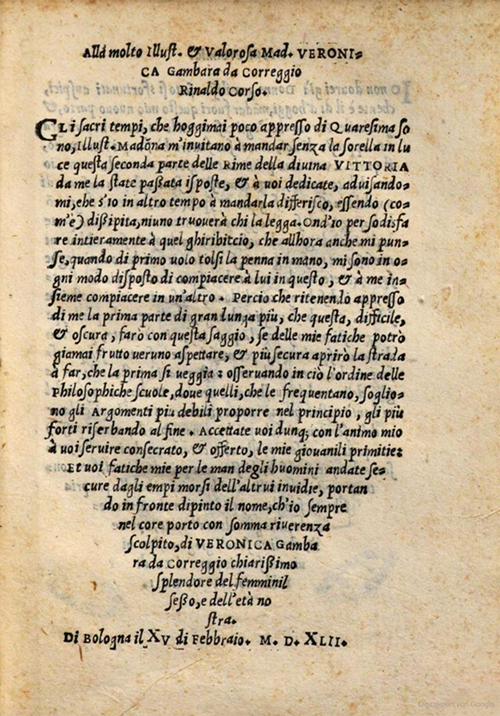 Alla molto Illust. & Valorosa Mad. VERONI=
CA Gambara da Correggio
Rinaldo Corso.
GLi sacri tempi, che hoggimai poco appresso di Quaresima so
no, Illust. Madõna m'invitano à mandar senza la sorella in lu
ce questa seconda parte delle Rime della divina VITTORIA
da me la state passata isposte, & à voi dedicate, advisando=
mi, che s'io in altro tempo à mandarla differisco, essendo (co=
m'è) dissipita, niuno truoverà chi la legga. Ond'io per sodisfa
re intieramente à quel ghiribitcio, che allhora anche mi pun=
se, quando di primo uolo tolsi la penna in mano, mi sono in o=
gni modo disposto di compiacere à lui in questo, & à me in=
sieme compiacere in un'altro. Percio che ritenendo appresso
di me la prima parte di gran lunga più, che questa, difficile,
& oscura, farò con questo saggio, se delle mie fatiche potrò
giamai frutto ueruno aspettare, & più secura aprirò la strada
à far, che la prima si ueggia: osseruando in ciò l'ordine delle
Philosophiche scuole, doue quelli, che le frequentano, soglio=
no gli Argomenti più debili proporre nel principio, gli più
forti riserbando al fine. Accettate voi dunq; con l'animo mio
à voi seruire consecrato, & offerto, le mie giouanili primitie:
Et voi fatiche mie per le man degli huomini andate se=
cure dagli empi morsi dell'altrui inuidie, portan
do in fronte dipinto il nome, ch'io sempre
nel core porto con somma riuerenza
scolpito, di VERONICA Gamba
ra da Correggio chiarissimo
splendore del feminil
sesso, e dell'età no
stra.
Di Bologna il XV di Febbraio. M. D. XLII.